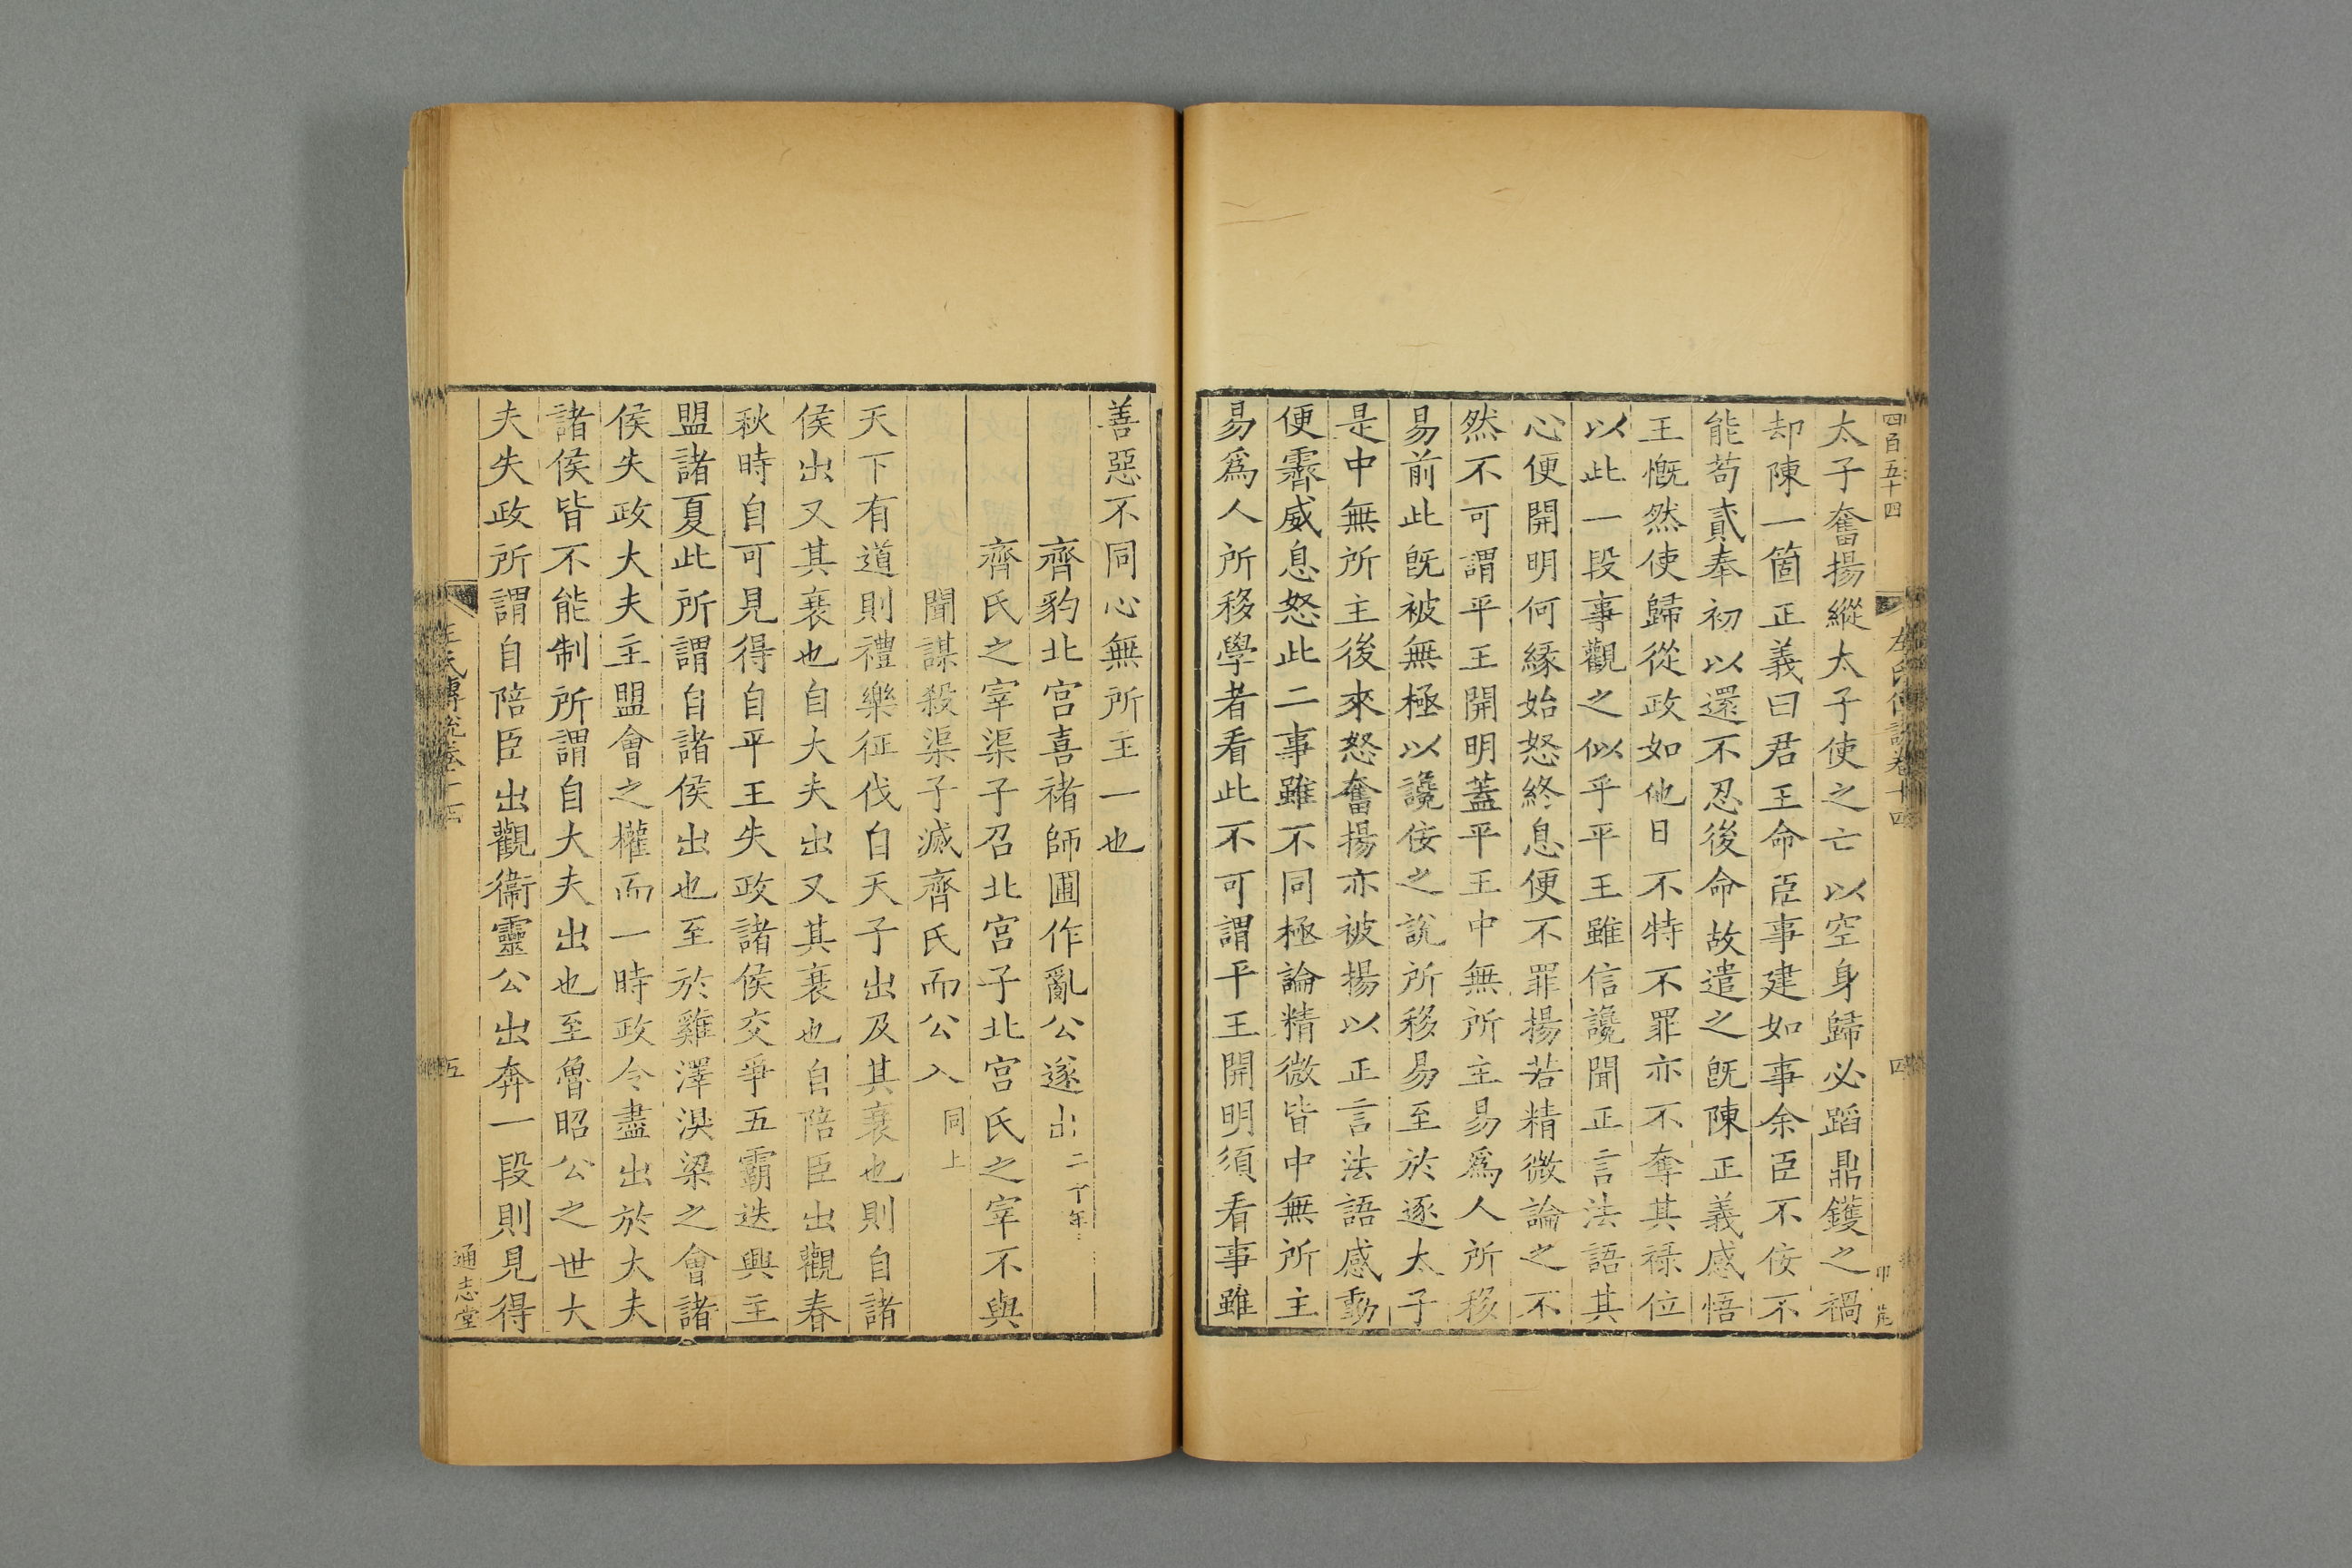 四百五十四
太子奮揚縱太子使之亡以空身歸必蹈鼎鑊之禍
却陳一箇正義曰君王命臣事建如事余臣不佞不
能苟貳奉初以還不忍後命故遣之旣陳正義感悟
王慨然使歸從政如他日不特不罪亦不奪其祿位
以此一段事觀之似乎平王雖信讒聞正言法語其
心便開明何緣始怒終息便不罪揚若精微論之不
然不可謂平王開明蓋平王中無所主易爲人所移
易前此旣被無極以讒佞之說所移易至於逐太子
是中無所主後來怒奮揚亦被揚以正言法語感動
便霽威息怒此二事雖不同極論精微皆中無所主
易爲人所移學者看此不可謂平王開明須看事雖
善惡不同心無所主一也
齊豹北宮喜褚師圃作亂公遂出二十年
齊氏之宰渠子召北宮子北宮氏之宰不與
聞謀殺渠子滅齊氏而公入同上
天下有道則禮樂征伐自天子出及其衰也則自諸
侯出又其衰也自大夫出又其衰也自陪臣出觀春
秋時自可見得自平王失政諸侯交爭五霸迭興主
盟諸夏此所謂自諸侯出也至於雞澤溴梁之會諸
侯失政大夫主盟會之權而一時政令盡出於大夫
諸侯皆不能制所謂自大夫出也至魯昭公之世大
夫失政所謂自陪臣出觀衞靈公出奔一段則見得
五
通志堂